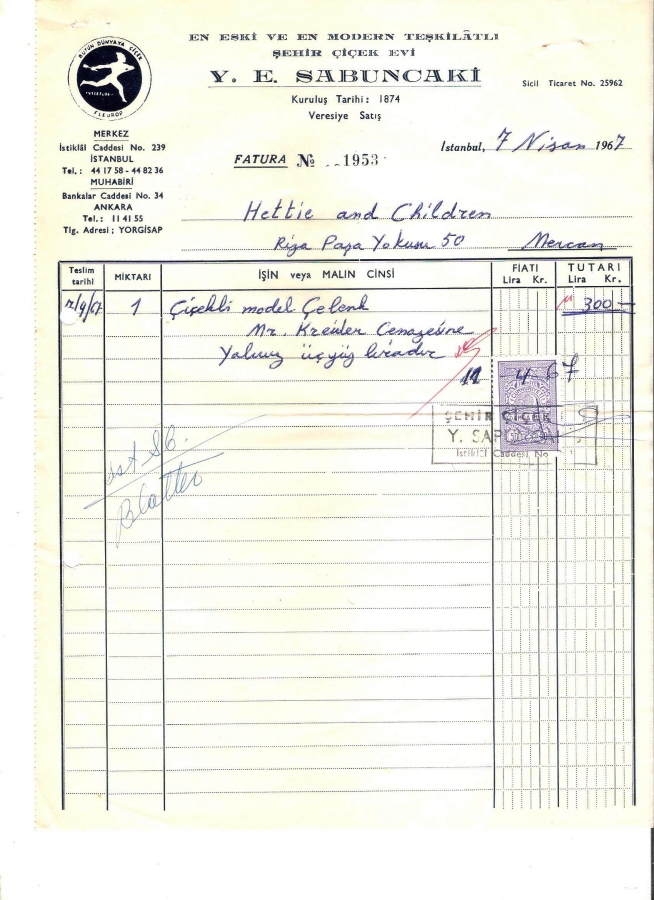 EN ESKİ VE EN MODERN TEŞKİLÂTLI
ŞEHİR ÇİÇEK EVİ
Y. E. SABUNCAKİ
Kuruluş Tarihi: 1874
Veresiye Satış
Sicil Ticaret No. 25962
BÜTÜN DÜNYAYA ÇİÇEK
FLEUROP
MERKEZ
İstiklâl Caddesi No. 239
İSTANBUL
Tel.: 44 17 58 - 44 82 36
MUHABİRİ
Bankalar Caddesi No. 34
ANKARA
Tel.: 11 41 55
Tlg. Adresi; YORGİSAP
İstanbul, 7 Nisan 1967
FATURA № 1953
Hettie and Children
Rıza Paşa Yokuşu 50 Mercan
Teslim tarihi
MİKTARI
İŞİN veya MALIN CİNSİ
FİATI
Lira Kr.
TUTARI
Lira Kr.
7/4/67 1 Çiçekli model Çelenk 300 —
Mr. Kreider Cenazesine
Yalnız üçyüz liradır
11 4 67
ŞEHİR ÇİÇEK
Y. SAP
İstiklâl Caddesi No
Blatter